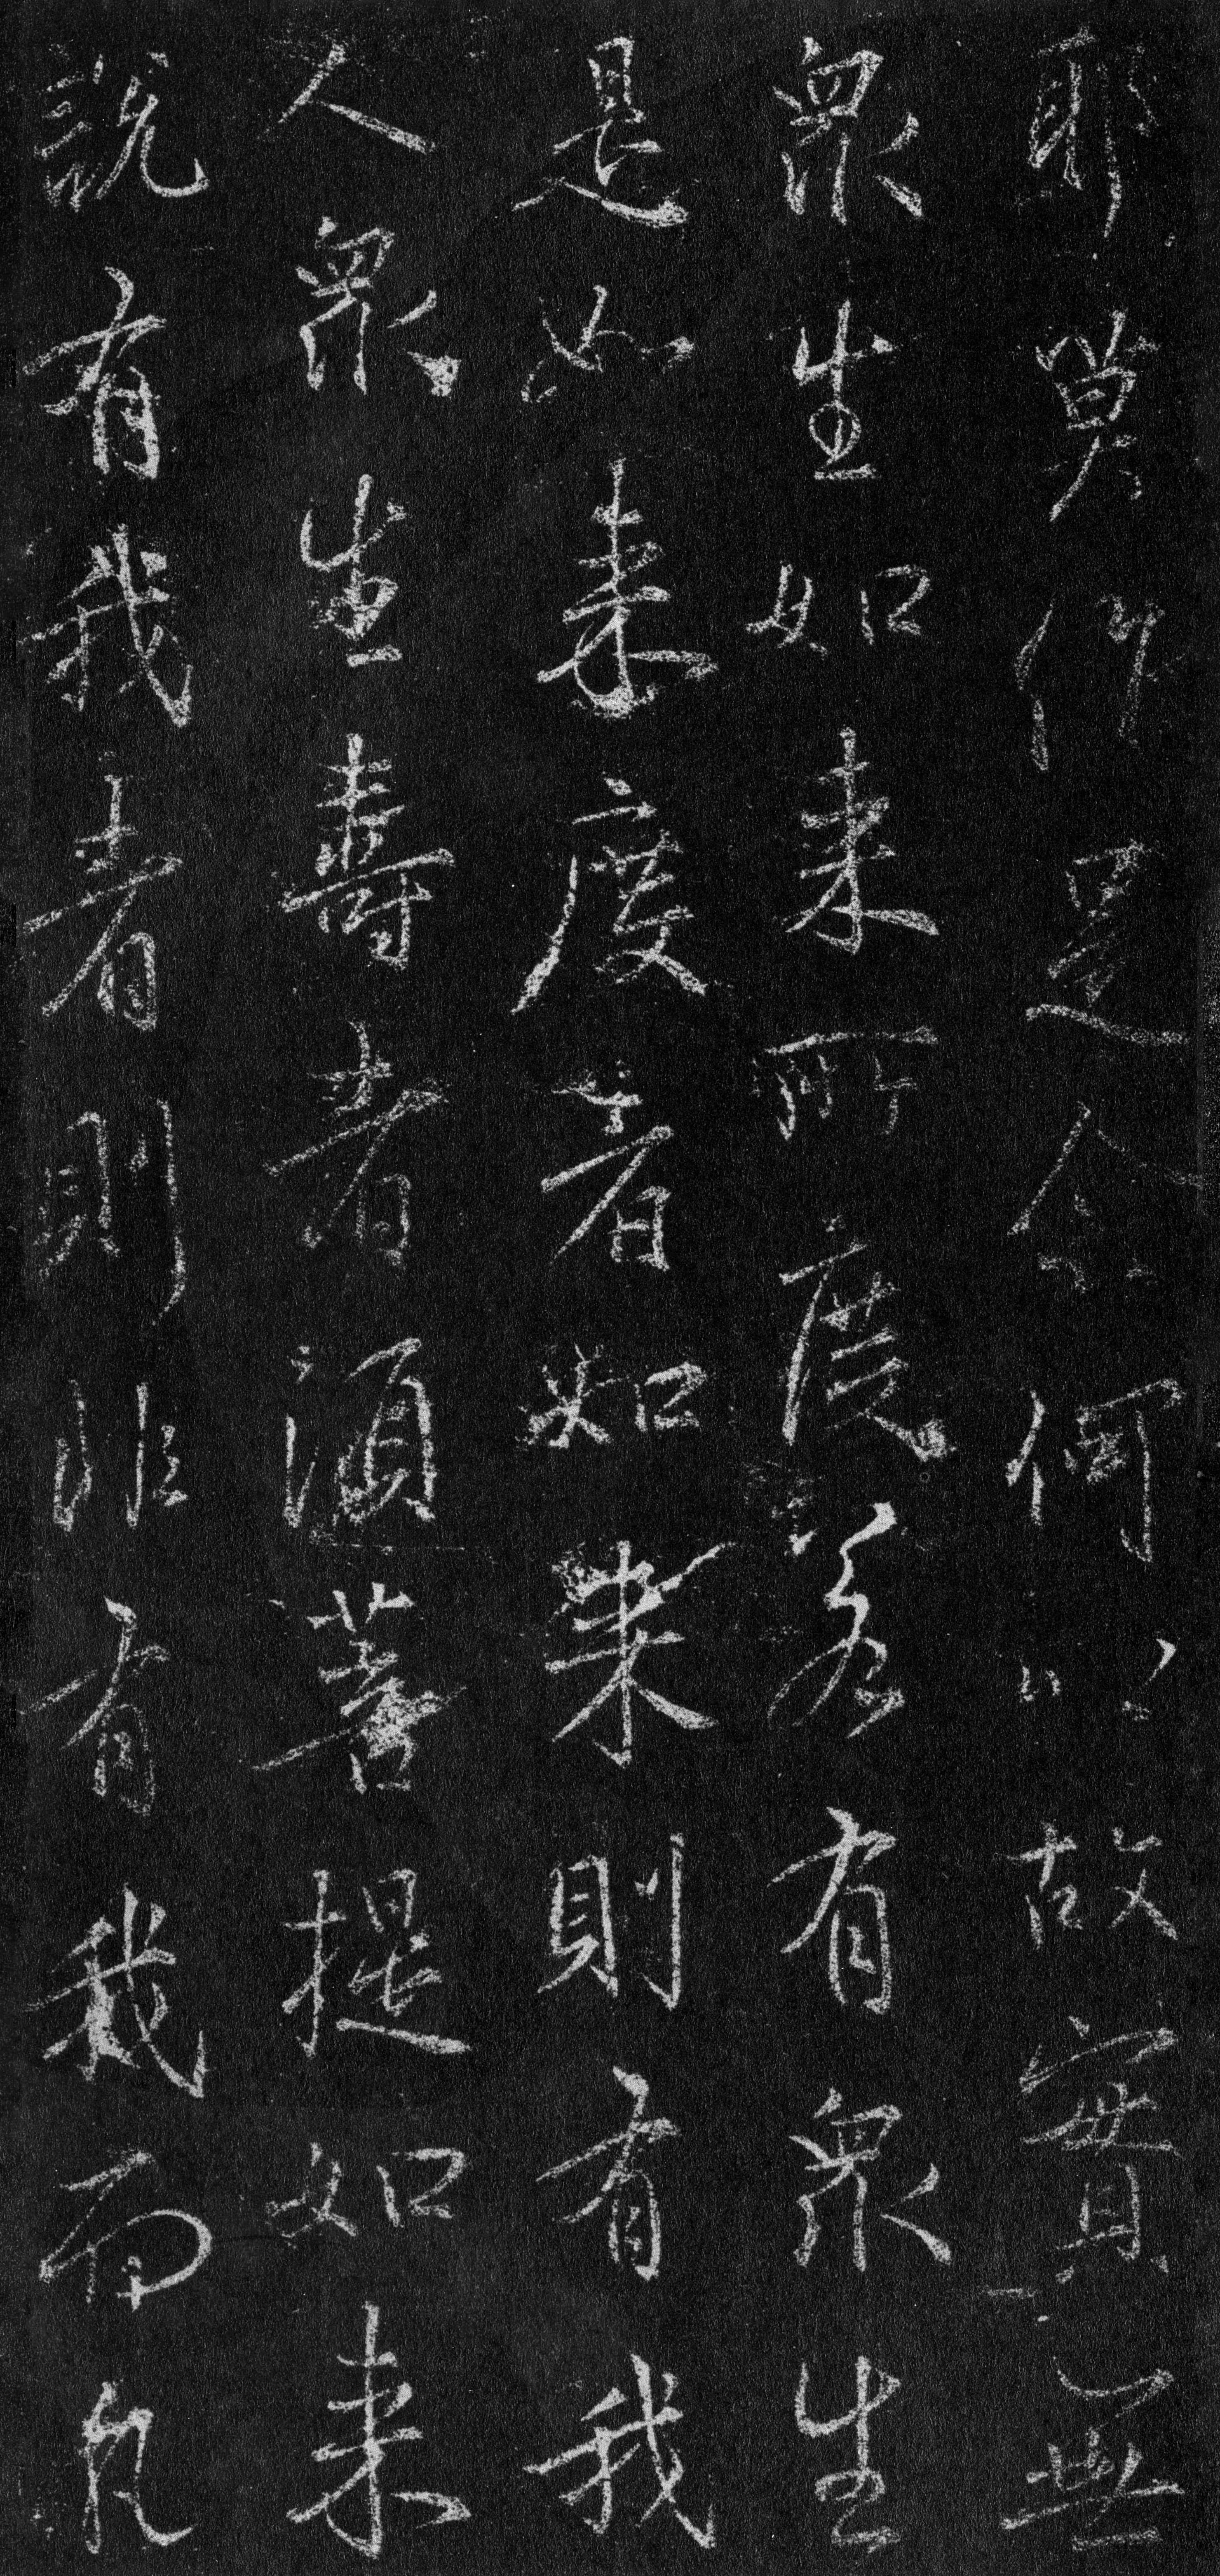 耶莫作是念何以故實無
衆生如來所度若有衆生
是如來度者如來則有我
人衆生壽者須菩提如來
說有我者則非有我而凡